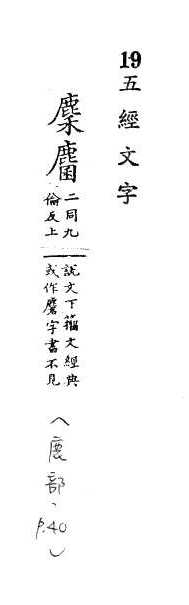 19五經文字
麇麕
二同九
倫反上
説文下籀文經典
或作麏字書不見
(鹿部、
p.40)